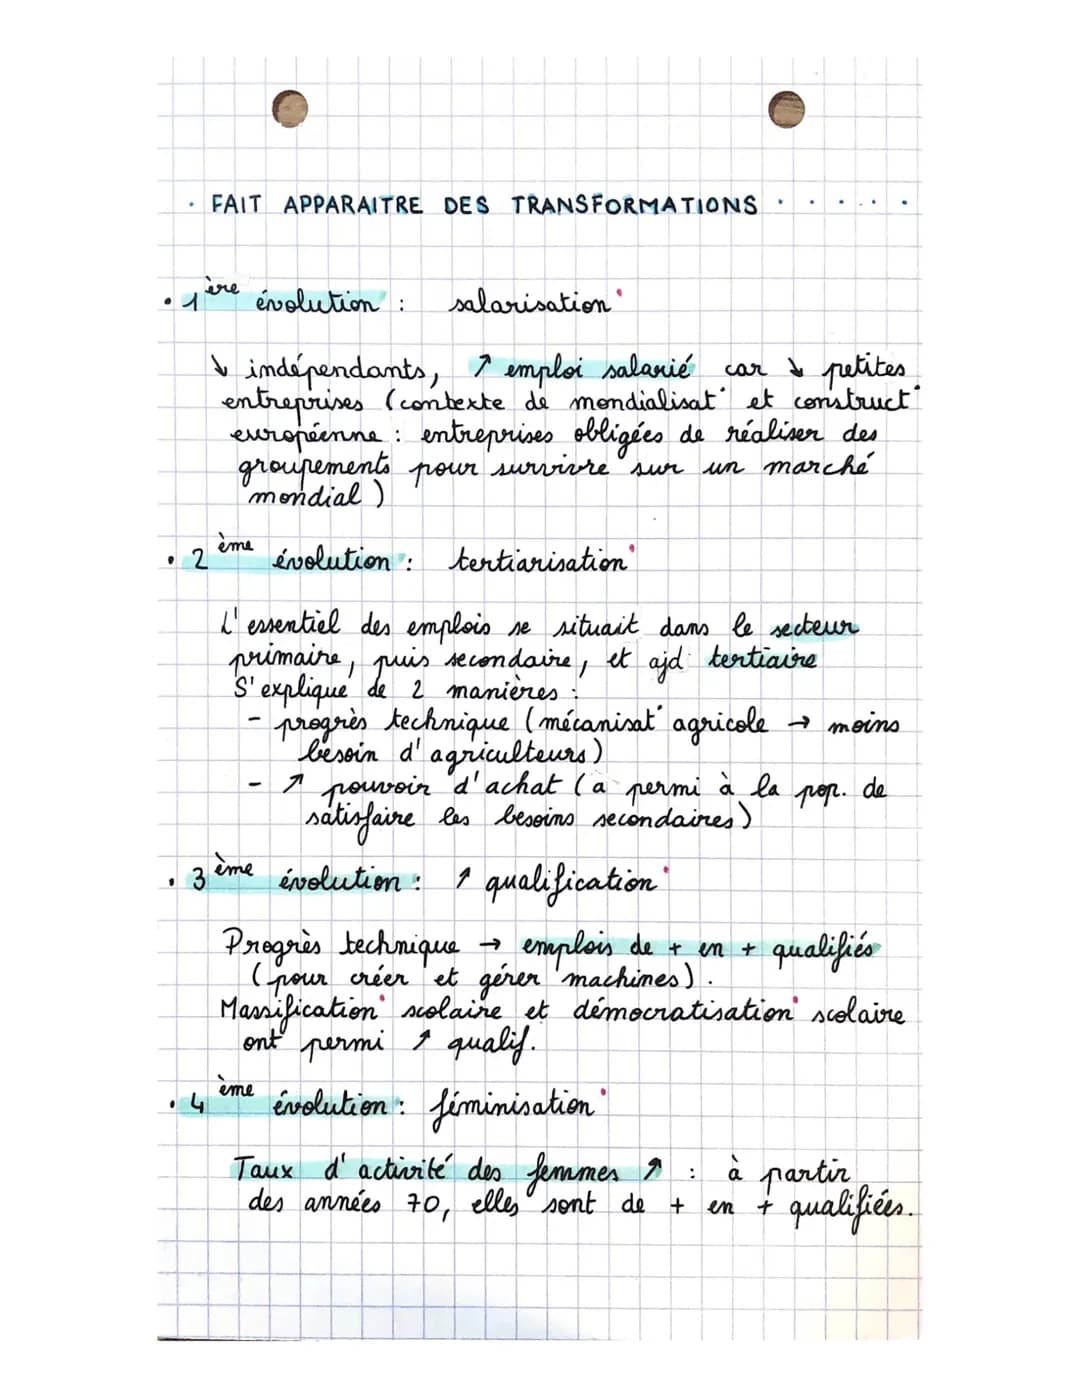 · FAIT APPARAITRE DES TRANSFORMATIONS · · · · ·
• 1ère évolution : salarisation•
↓ indépendants, ↗ emploi salarié car ↓ petites
entreprises (contexte de mondialisat° et construct°
européenne : entreprises obligées de réaliser des
groupements pour survivre sur un marché
mondial)
• 2ème évolution : tertiarisation•
L'essentiel des emplois se situait dans le secteur
primaire, puis secondaire, et ajd tertiaire
S'explique de 2 manières :
- progrès technique (mécanisat° agricole → moins
besoin d'agriculteurs)
- ↗ pouvoir d'achat (a permi à la pop. de
satisfaire les besoins secondaires)
• 3ème évolution : ↗ qualification•
Progrès technique → emplois de + en + qualifiés
(pour créer et gérer machines).
Massification• scolaire et démocratisation• scolaire
ont permi ↗ qualif.
• 4ème évolution : féminisation•
Taux d'activité des femmes ↗ : à partir
des années 70, elles sont de + en + qualifiées.